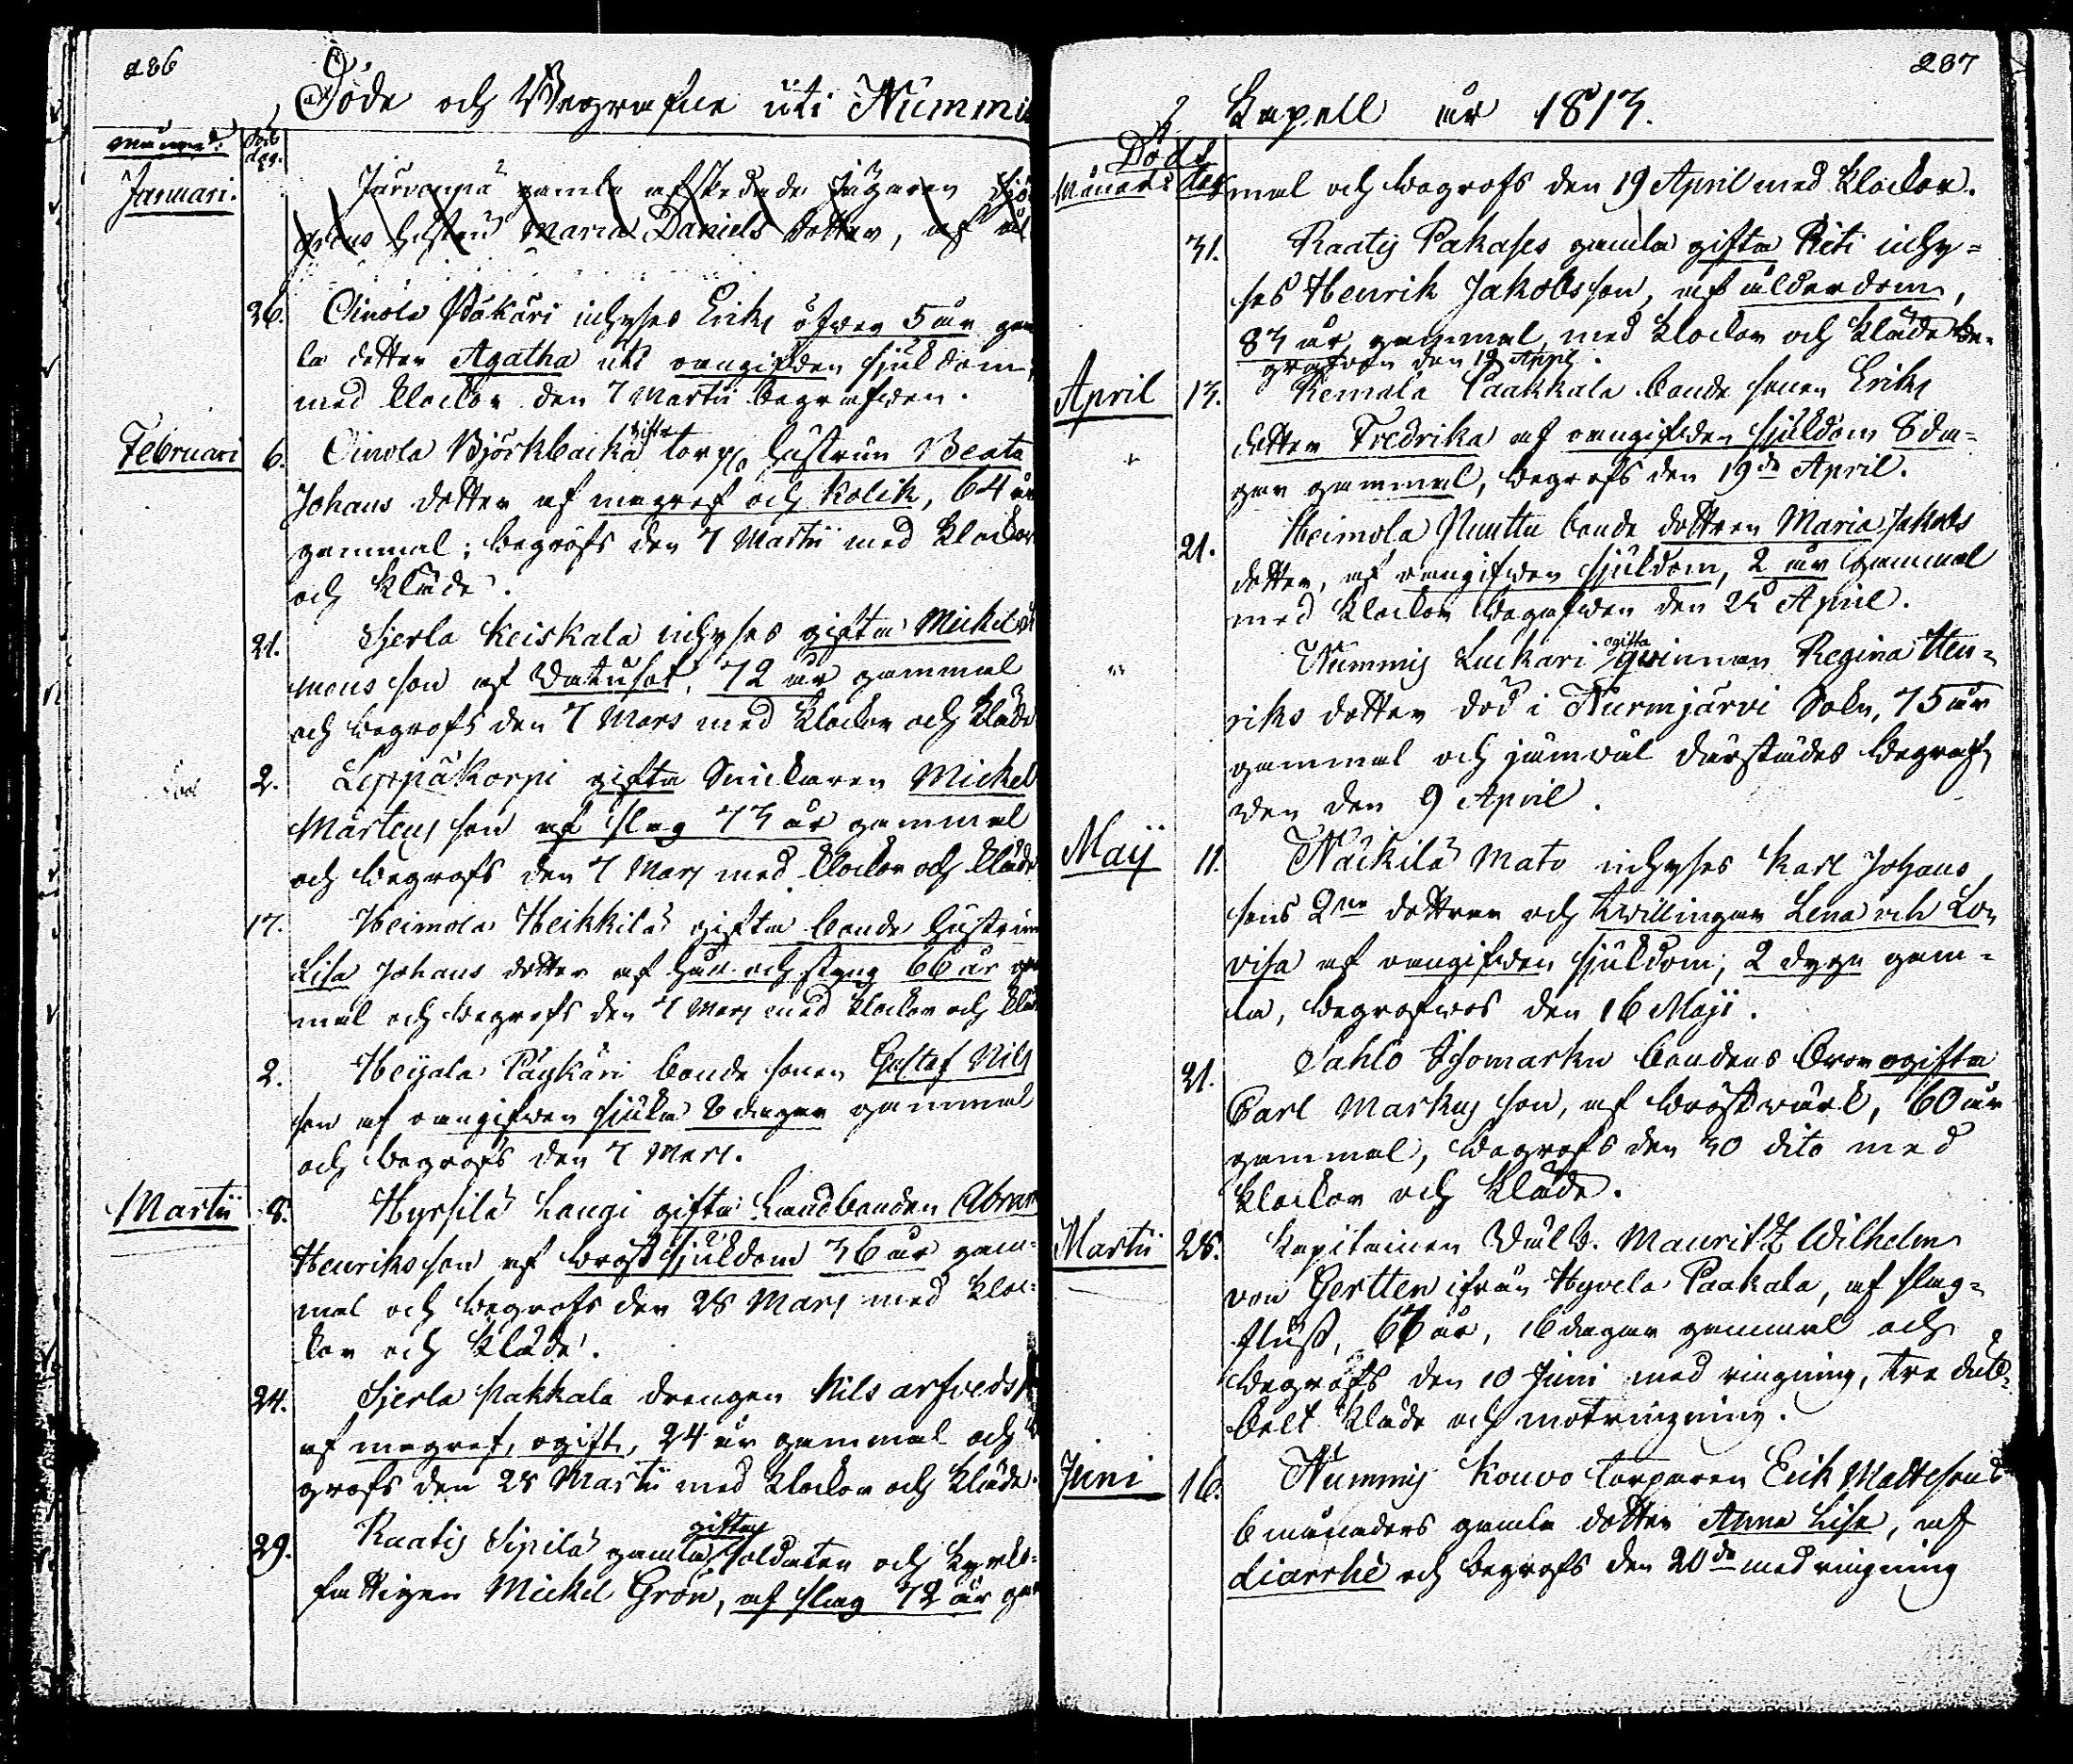 286
Döde och Begrafne uti Nummis
Månad. Död dag.
Januari.
Järvenpä gamla afskedade Jägaren
hustru Maria Daniels dotter, af
26. Oinola Päkäri inhyses Eriks öfver 5 år gam
la dotter Agatha utaf oangifven sjukdom;
med klockor den 7 Martii begrafven.
Februari 6. Oinola Björkbacka gifta torp. hustrun Beata
Johans dotter af magref och kolik, 64 år
gammal; begrofs den 7 Martii med klockor
och kläde.
21. Sierla Keiskala inhyses gifta Mickel
mons son af Vatusot, 72 år gammal
och begrofs den 7 Mars med klockor och kläde
2. Leppäkorpi gifta Snickaren Mickel
Mårtens son af slag 73 år gammal
och begrofs den 7 Mars med klockor och kläde
17. Heimola Heikkilä gifta bonde hustrun
Lisa Johans dotter af håll och styng 66 år gam
mal och begrofs den 7 Mars med klockor och kläd
2. Heijala Päykäri bonde sonen Gustaf Nils
son af oangifven sjuka 8 dagar gammal
och begrofs den 7 Mars.
Martii 8. Hyrsilä Laugi gifta Landbonden Abram
Henriksson af bröstsjukdom 36 år gam=
mal och begrofs den 28 Mars med kloc=
kor och kläde.
24. Sierla Pakkala drengen Nils arfveds
af magref, ogift, 24 år gammal och be
grofs den 28 Martii med klockor och kläde.
29. Raatis Sipilä gamla gifta soldaten och kyrko=
fattigen Mickel Grön, af slag 72 år gam
287
Kapell år 1813.
Döds
Månad: dag
mal och begrofs den 19 April med klockor.
31. Raatis Pakases gamla gifta Riti inhy=
ses Henrik Jakobsson, af ålderdom,
83 år gammal, med klockor och kläde be=
grafven den 19 April.
April 13. Remala Paakkala bonde sonen Eriks
dotter Fredrika af oangifven sjukdom 8 da=
gar gammal, begrofs den 19de April.
21. Heimola Nuuttu bonde dottren Maria Jakobs
dotter, af oangifven sjukdom, 2 år gammal
med klockor begrafven den 25 April.
Nummis Luckari ogifta qvinnan Regina Hen=
riks dotter död i Nurmjärvi Sokn, 75 år
gammal och jämväl därstädes begraf
ven den 9 April.
Maij 11. Näckilä Mato inhyses Karl Johans
sons 2ne döttrar och tvillingar Lena och Lo
visa af oangifven sjukdom; 2 dygn gam=
la, begrofvos den 16 Maji.
21. Sahlo Skomarku bondens Bror ogifta
Carl Markus son, af bröstvärk, 60 år
gammal, begrofs den 30 dito med
klockor och kläde.
Martii 28. Kapitainen Välb. Mauritz Wilhelm
von Gertten ifrån Hyvela Paakala, af slag=
fluss, 67 år, 16 dagar gammal och
begrofs den 10 Juni med ringning, tre dub=
belt kläde och motringning.
Juni 16. Nummis Kouvo torparen Erik Mattesons
6 månaders gamla dotter Anna Lisa, af
diarrhé och begrofs den 20de med ringning